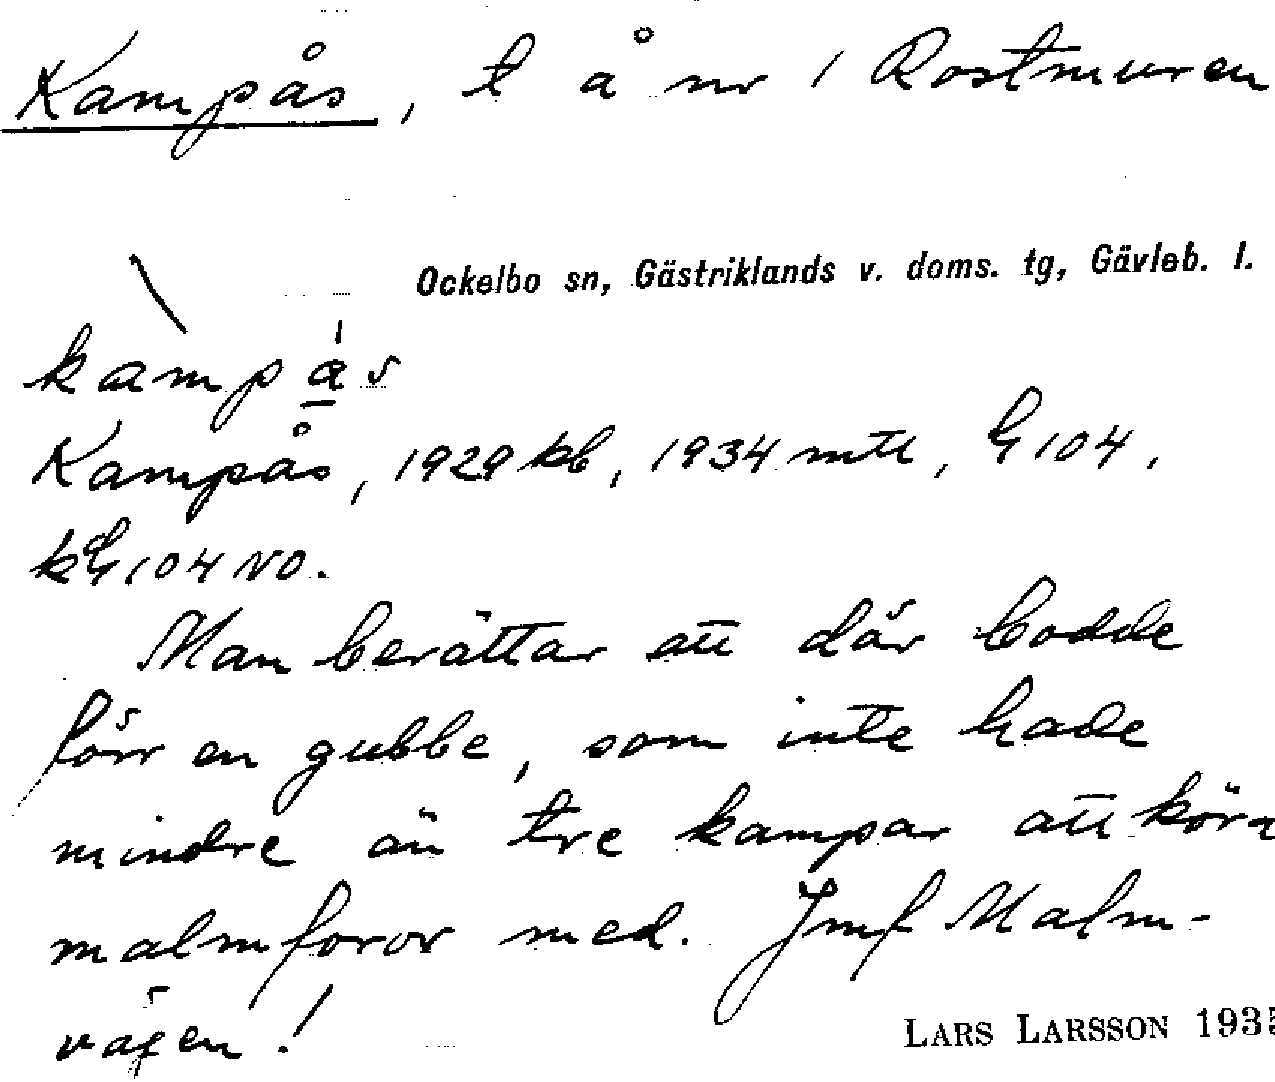 Kampås, t å nr 1 Rostmuren
Ockelbo sn, Gästriklands v. doms. tg, Gävleb. l.
kampås
Kampås, 1929 kb, 1934 mtl, G 104,
kG 104 NO.
Man berättar att där bodde
förr en gubbe, som inte hade
mindre än tre kampar att köra
malmforor med. Jmf Malm-
vägen!
LARS LARSSON 1935